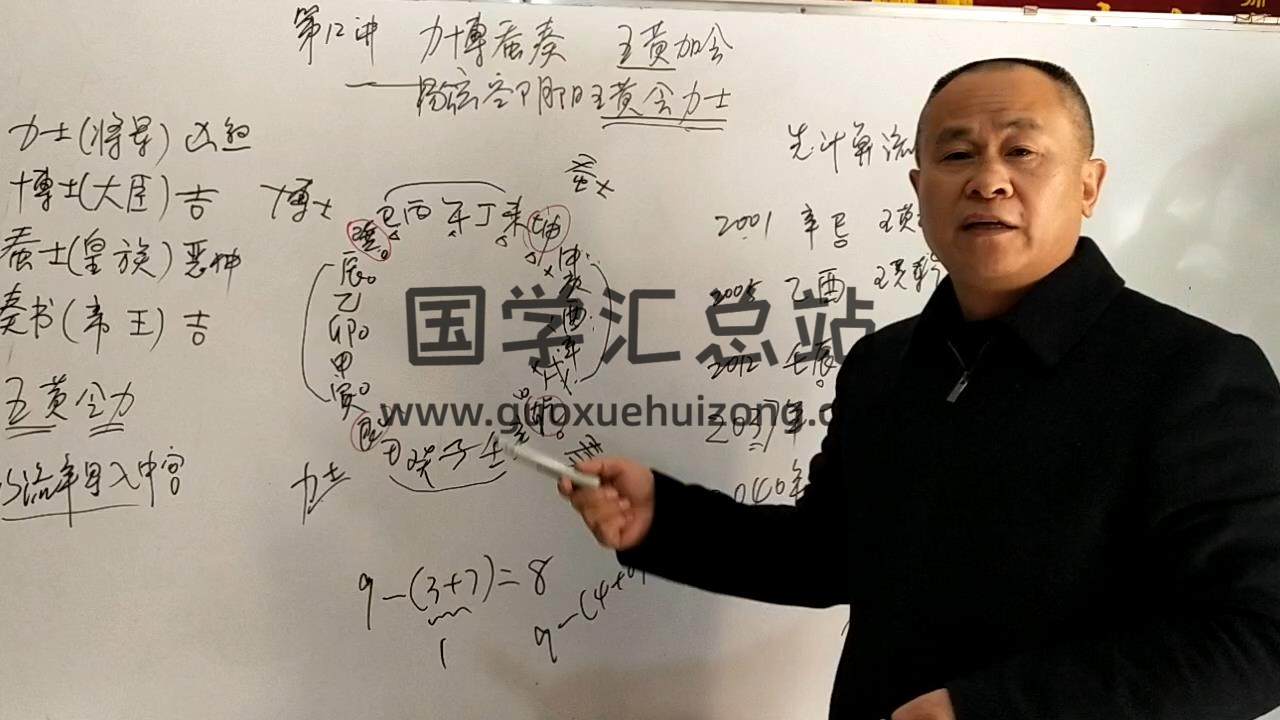 第12讲 力博蚕奏 五黄加会
五黄会力士
力士(将军)凶煞
博士(大臣)吉
蚕士(皇族)恶神
奏书(帝王)吉
五黄会力
以流年星入中宫
博士
巳丙午丁未坤
辰
乙
卯
甲
寅
申
庚
酉
辛
戌
丑癸子壬
力士
9-(3+7)=8
1
9-(4+
先计算流
2001 辛巳 五黄
2005 乙酉 五黄
2012 壬辰
2037年
2040年
国学汇总站
www.guoxuehuizong.c